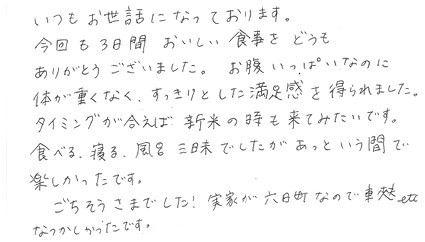 いつもお世話になっております。
今回も3日間 おいしい食事を どうも
ありがとうございました。 お腹いっぱいなのに
体が重くなく、すっきりとした満足感を得られました。
タイミングが合えば 新米の時も来てみたいです。
食べる、寝る、風呂 三昧でしたが あっという間で
楽しかったです。
ごちそうさまでした! 実家が六日町なので 車 etc
なつかしかったです。